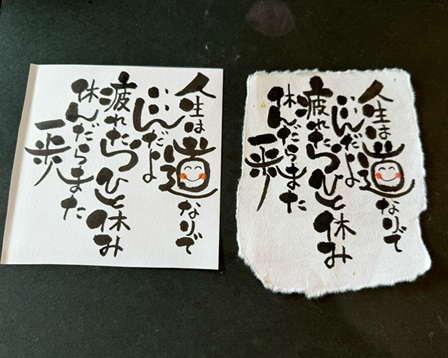 人生は道なりで
いいんだよ
疲れたらひと休み
休んだらまた
一歩
人生は道なりで
いいんだよ
疲れたらひと休み
休んだらまた
一歩